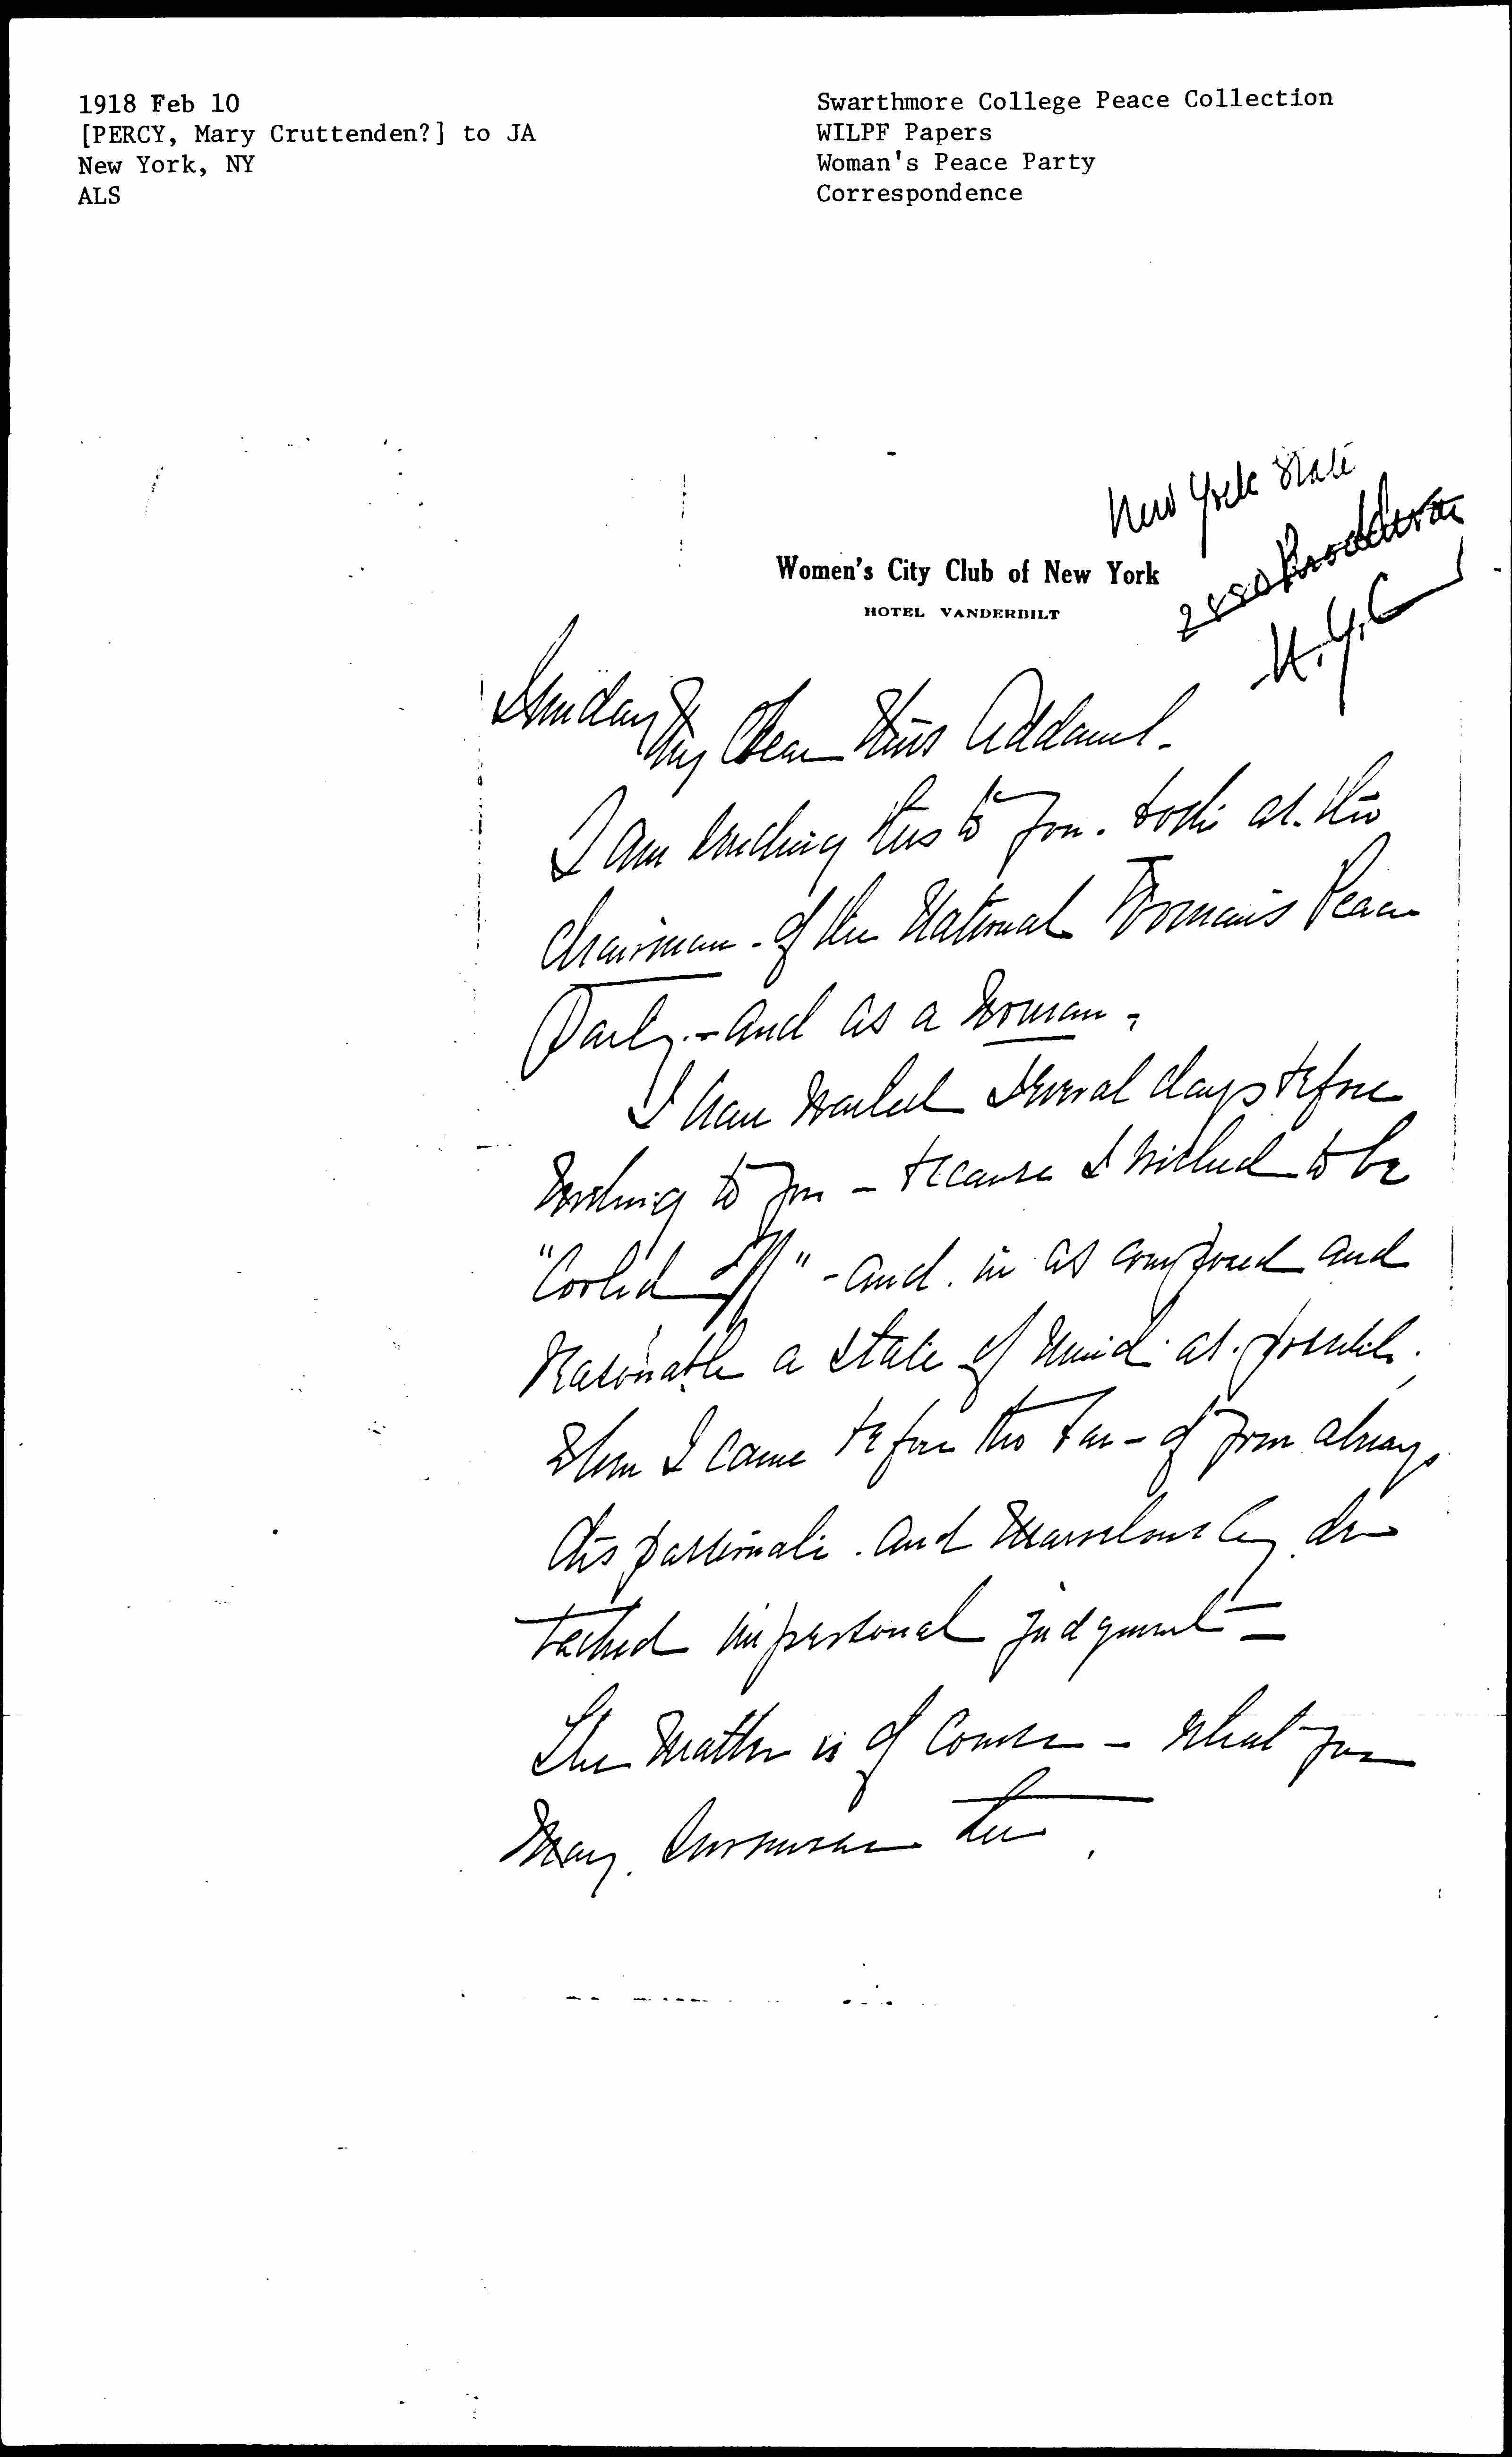 1918 Feb 10
[PERCY, Mary Cruttenden?] to JA
New York, NY
ALS
Swarthmore College Peace Collection
WILPF Papers
Woman's Peace Party
Correspondence
New York State
Women's City Club of New York
HOTEL VANDERBILT
2880 Broadway
N.Y.C
Sunday
My Dear Miss Addams.
I am sending this to you. both as the
chairman - of the National Woman's Peace
Party. - and as a woman -
I have waited several days before
writing to you - because I wished to be
"Cooled off" - and. in as composed and
reasonable a state of mind as. possible.
when I came before the bar - of your always
dispassionate. and marvelously de
tached impersonal judgment -
The matter is of course - what you
may. surmise